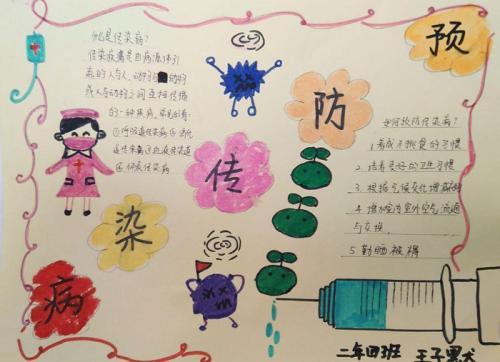 预
防
传
染
病
什么是传染病?
传染病毒是由病源体引
起的人与人、动物与动物
或人与动物之间互相传播
的一种疾病,常见的有:
①呼吸道传染病②消化
道传染病③血液传染道
④体液传染病
如何预防传染病?
1.养成不挑食的习惯
2.培养良好的卫生习惯
3.根据气候变化增减
4.增加室内室外空气流通
与交换
5.勤晒被褥
二年四班